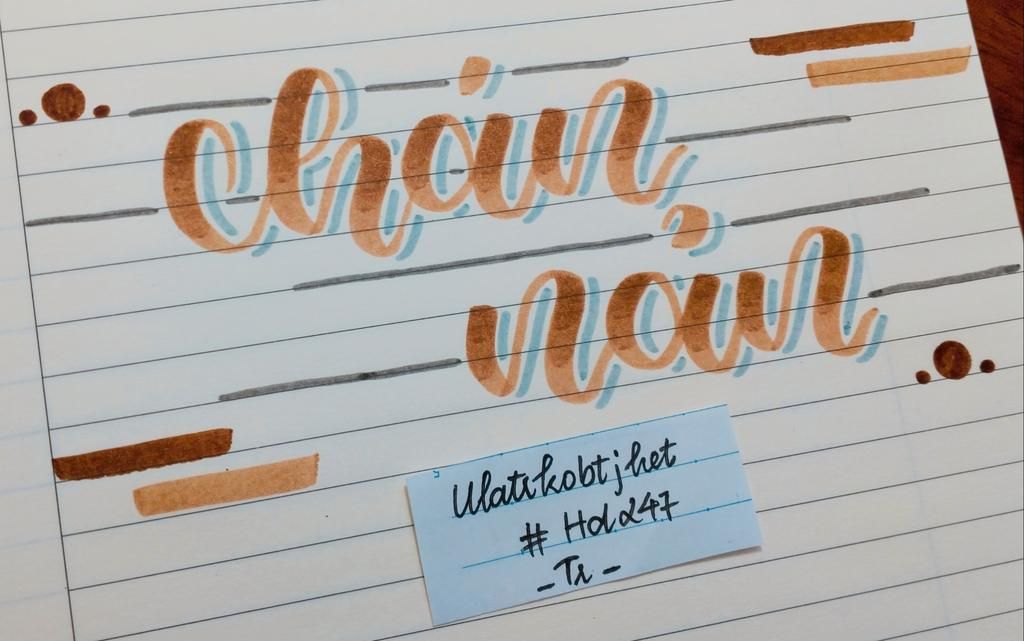 chán
nản
Ulatrkobtjhet
# Hdα247
-Tr-